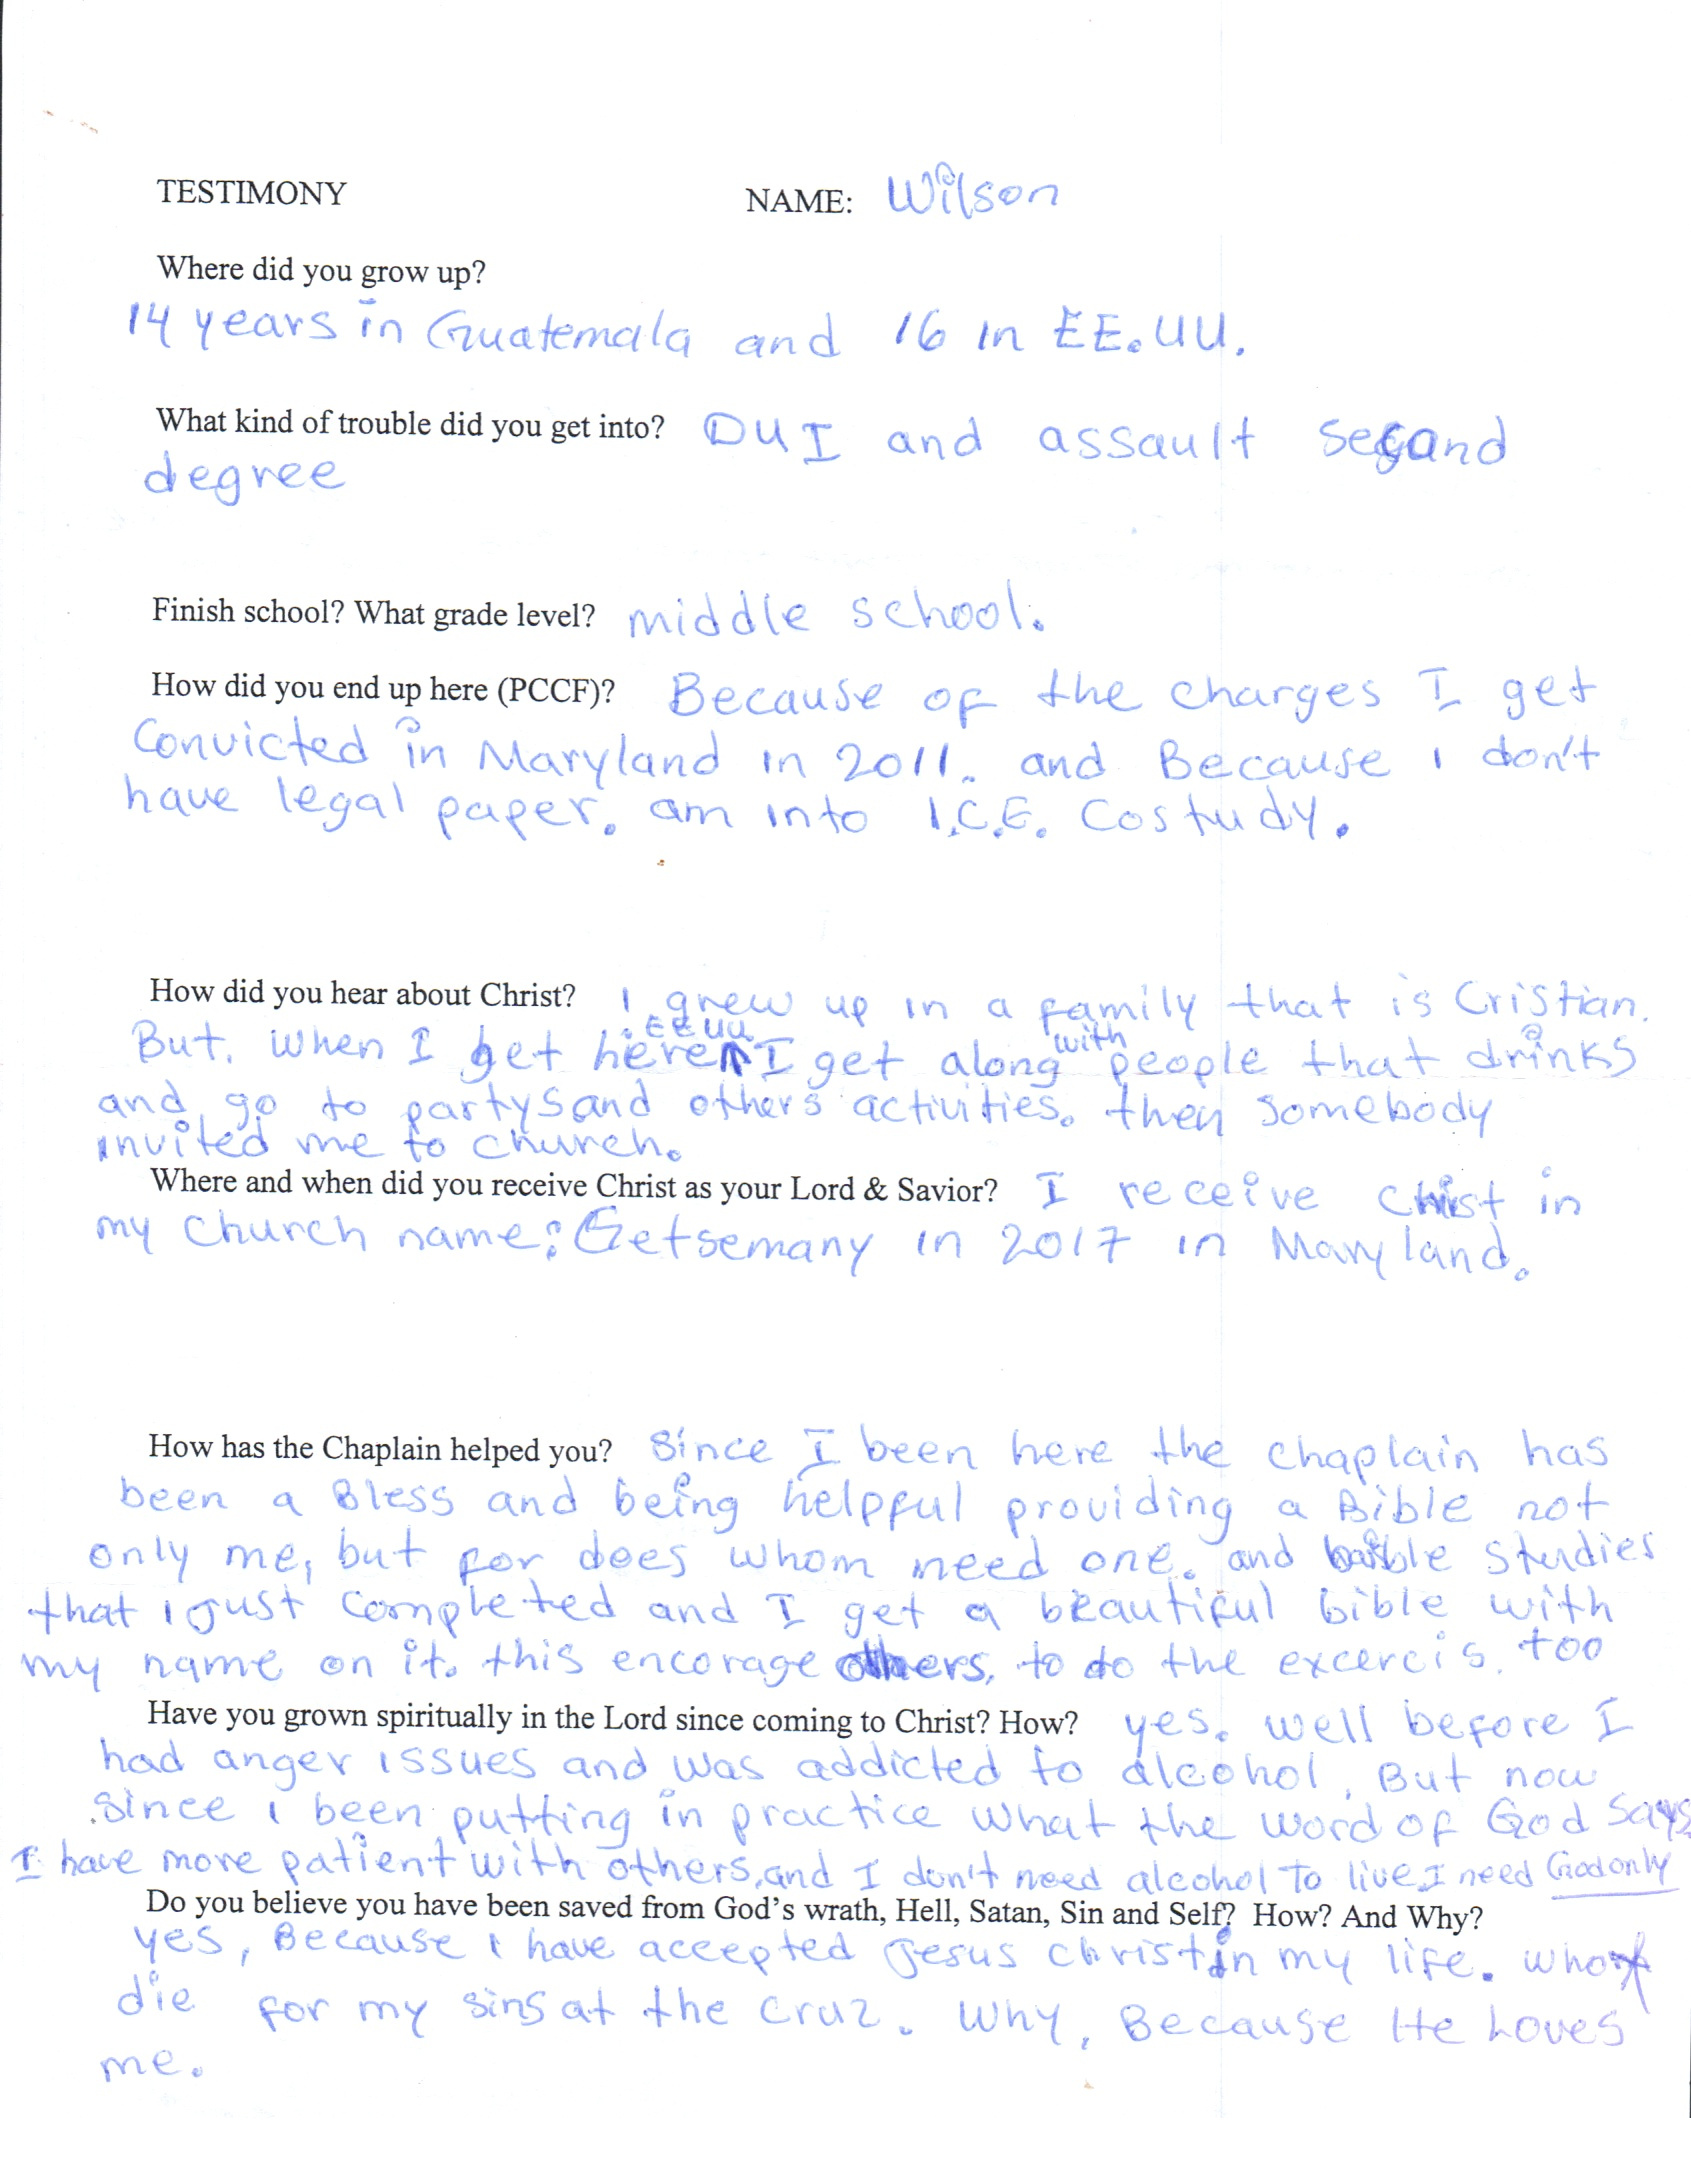 TESTIMONY NAME: Wilson
Where did you grow up?
14 years in Guatemala and 16 in EE.UU.
What kind of trouble did you get into? DUI and assault second
degree
Finish school? What grade level? middle school.
How did you end up here (PCCF)? Because of the charges I get
Convicted in Maryland in 2011. and Because i don't
have legal paper. am into I.C.E. Costudy.
How did you hear about Christ? I grew up in a family that is Cristian.
But. when I get here EEUU. I get along with people that drinks
and go to partys and others activities. then somebody
invited me to church.
Where and when did you receive Christ as your Lord & Savior? I receive Christ in
my church name: Getsemany in 2017 in Maryland.
How has the Chaplain helped you? Since I been here the chaplain has
been a Bless and being helpful providing a Bible not
only me, but for does whom need one. and bible studies
that i just completed and I get a beautiful bible with
my name on it. this encorage others. to do the excercis. too
Have you grown spiritually in the Lord since coming to Christ? How? yes. well before I
had anger issues and was addicted to alcohol. But now
since i been putting in practice what the word of God says,
I have more patient with others, and I don't need alcohol to live I need God only
Do you believe you have been saved from God's wrath, Hell, Satan, Sin and Self? How? And Why?
yes, Because i have accepted Jesus christ in my life. who
die for my sins at the cruz. Why, Because He Loves
me.